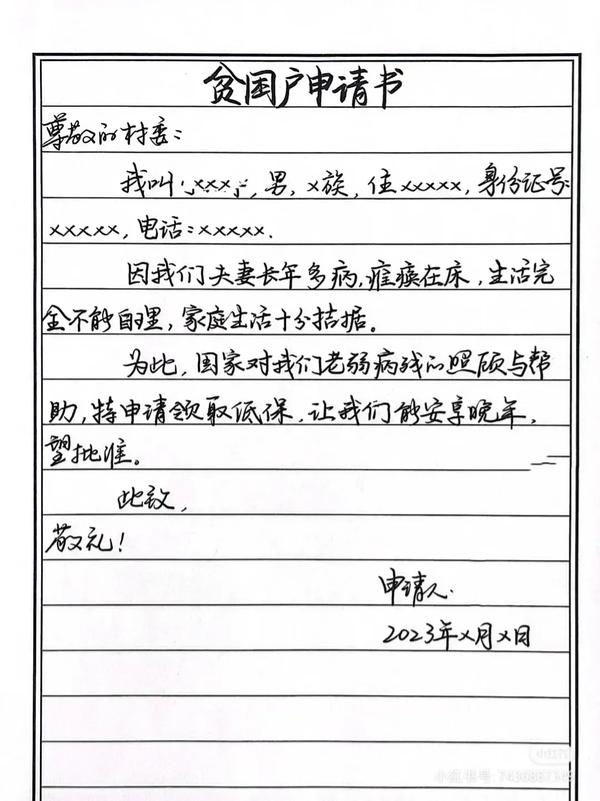 贫困户申请书
尊敬的村委：
我叫，xxx，男，x族，住xxxxx，身份证号：
xxxxx，电话：xxxxx.
因我们夫妻长年多病，瘫痪在床，生活完
全不能自理，家庭生活十分拮据。
为此，国家对我们老弱病残的照顾与帮
助，特申请领取低保，让我们能安享晚年，
望批准。
此致，
敬礼！
申请人.
2023年x月x日
小红书号：